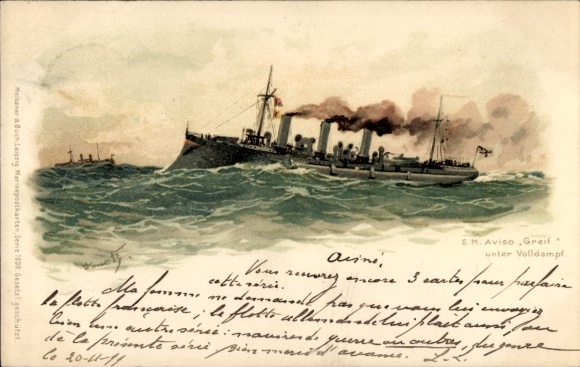 Meissner & Buch, Leipzig Marinepostkarten, Serie 1006 Gesetzl. geschützt
S. M. Aviso „Greif“
unter Volldampf.
Aviné,
Vous recevrez encore 3 cartes pour parfaire
cette série.
Ma femme ne demande pas que vous lui envoyez
la flotte française; la flotte allemande lui plait aussi, ou
bien une autre série: navires de guerre ou autres, du genre
de la présente série Bien merci d'avance. L. L.
le 20-11-99